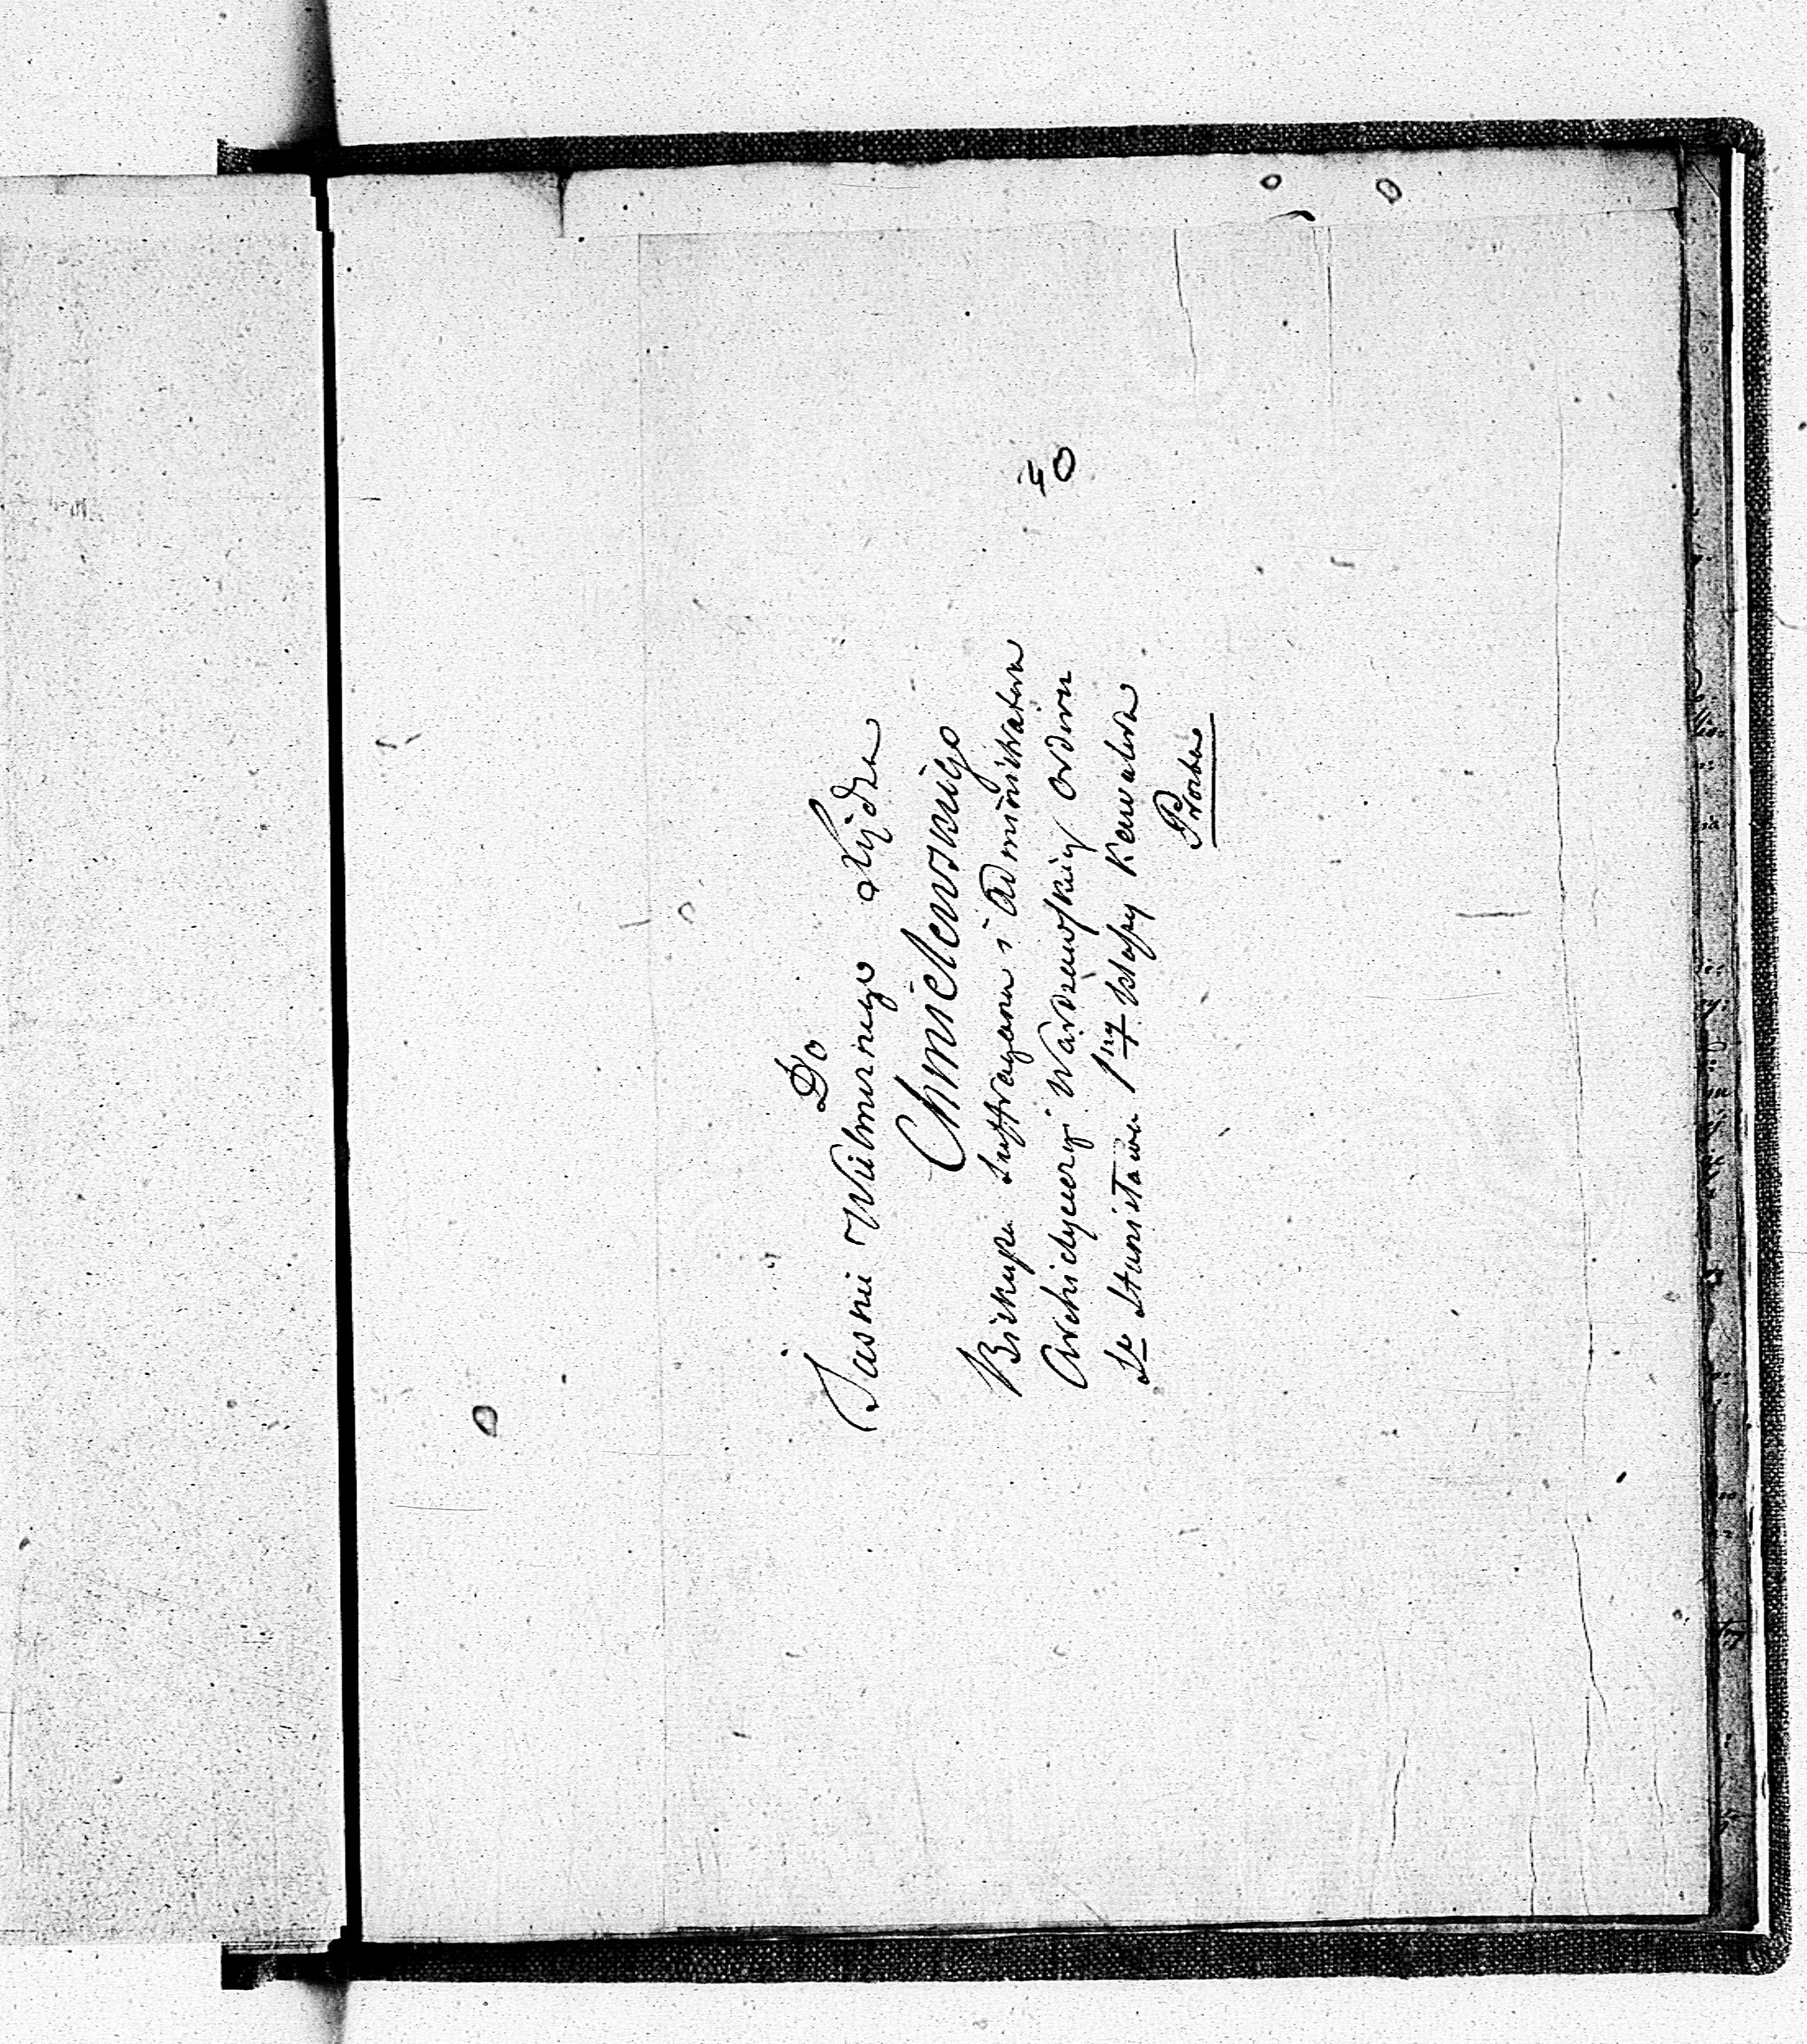 Do
Jasnie Wielmożnego Xiędza
Chmielewskiego
Biskupa Suffragana i Administratora
Archidyecezyi Warszawskiey Orderu
Sgo Stanisława 1ey klassy Kawalera
Prozba
40